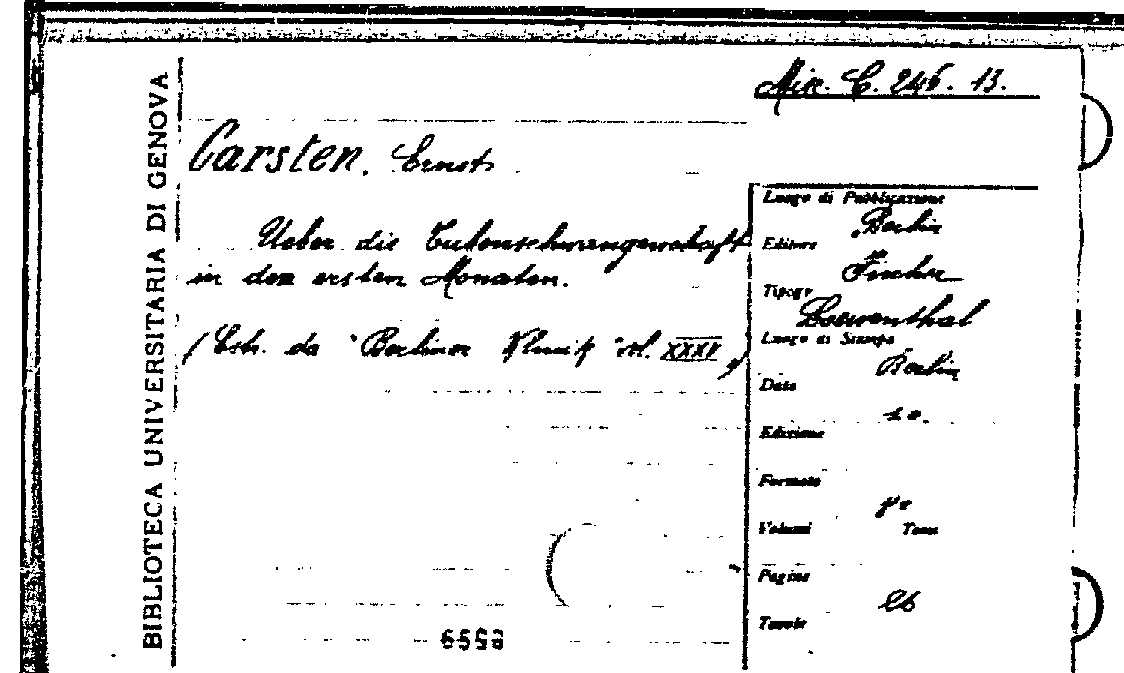 BIBLIOTECA UNIVERSITARIA DI GENOVA
Misc. C. 246. 13.
Carsten, Ernst
Ueber die Tubenschwangerschaft
in den ersten Monaten.
(Estr. da "Berliner Klinik" vol. XXXI)
Luogo di Pubblicazione
Berlin
Editore
Fischer
Tipogr
Loewenthal
Luogo di Stampa
Berlin
Data
Edizione
Formato
8°
Volumi Tomi
Pagine
26
Tavole